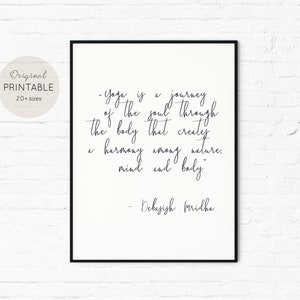 Original
PRINTABLE
20+ sizes
"Yoga is a journey
of the soul through
the body that creates
a harmony among nature,
mind and body"
- Debasish Mridha